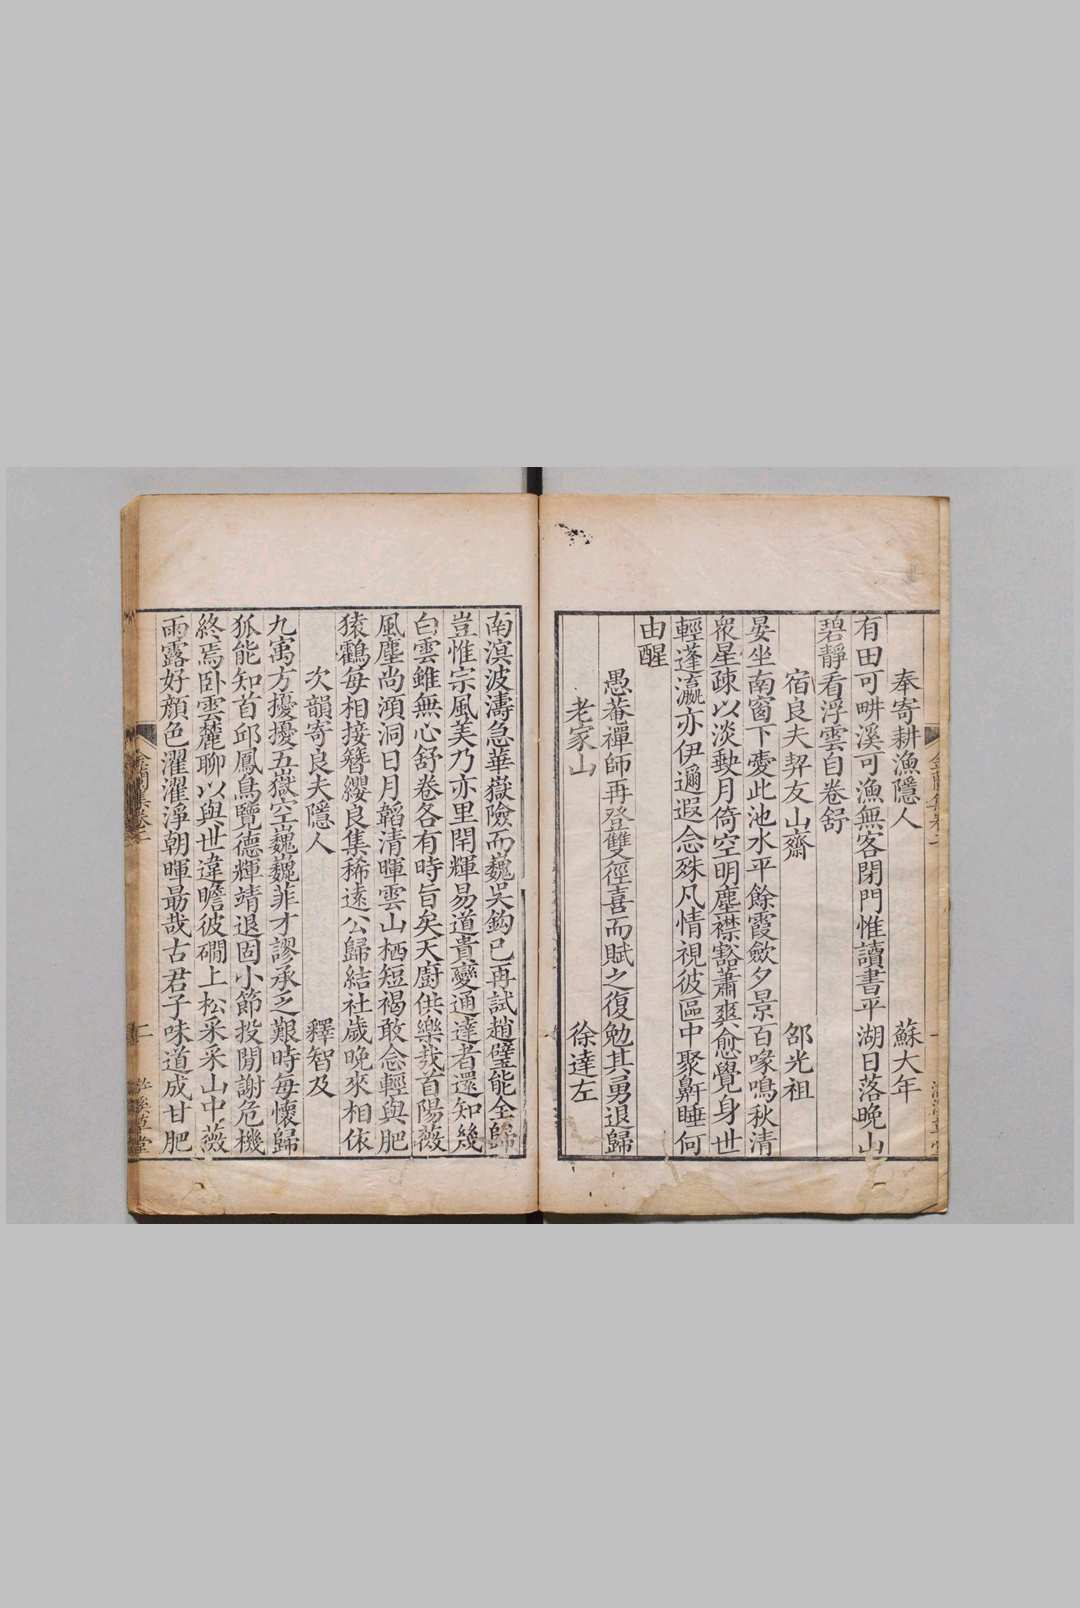 奉寄耕漁隱人 蘇大年
有田可畊溪可漁無客閉門惟讀書平湖日落晚山
碧靜看浮雲自卷舒
宿良夫契友山齋 邵光祖
晏坐南窗下愛此池水平餘霞斂夕景百喙鳴秋清
衆星疎以淡駛月倚空明塵襟豁蕭爽愈覺身世
輕蓬瀛亦伊邇遐念殊凡情視彼區中聚鼾睡何
由醒
愚菴禪師再登雙徑喜而賦之復勉其勇退歸
老家山 徐達左
南溟波濤急華嶽險而巍吳鈎已再試趙璧能全歸
豈惟宗風美乃亦里閈輝易道貴變通達者還知幾
白雲雖無心舒卷各有時旨矣天廚供樂哉首陽薇
風塵尚澒洞日月韜清暉雲山栖短褐敢念輕與肥
猿鶴每相接簪纓良集稀遠公歸結社歲晚來相依
次韻寄良夫隱人 釋智及
九㝢方擾擾五嶽空巍巍菲才謬承乏艱時每懷歸
狐能知首邱鳳鳥覽德輝靖退固小節投閒謝危機
終焉卧雲麓聊以與世違瞻彼磵上松采采山中薇
雨露好顏色濯濯淨朝暉最哉古君子味道成甘肥
金蘭集卷二
二